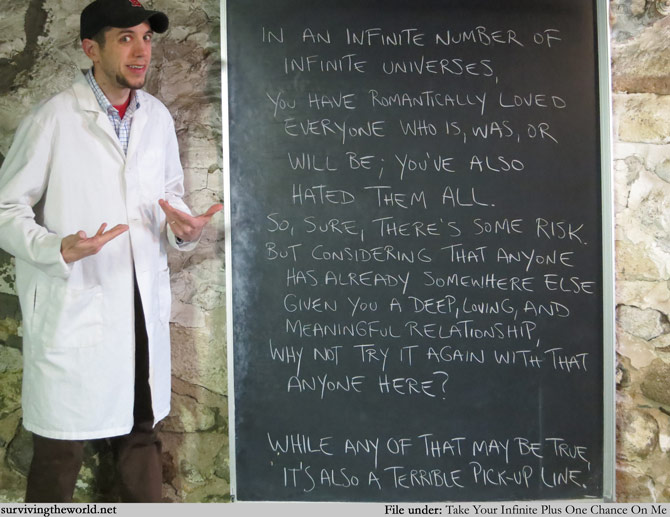 IN AN INFINITE NUMBER OF
INFINITE UNIVERSES,
YOU HAVE ROMANTICALLY LOVED
EVERYONE WHO IS, WAS, OR
WILL BE; YOU'VE ALSO
HATED THEM ALL.
SO, SURE, THERE'S SOME RISK.
BUT CONSIDERING THAT ANYONE
HAS ALREADY SOMEWHERE ELSE
GIVEN YOU A DEEP, LOVING, AND
MEANINGFUL RELATIONSHIP,
WHY NOT TRY IT AGAIN WITH THAT
ANYONE HERE?
WHILE ANY OF THAT MAY BE TRUE,
IT'S ALSO A TERRIBLE PICK-UP LINE.
survivingtheworld.net
File under: Take Your Infinite Plus One Chance On Me